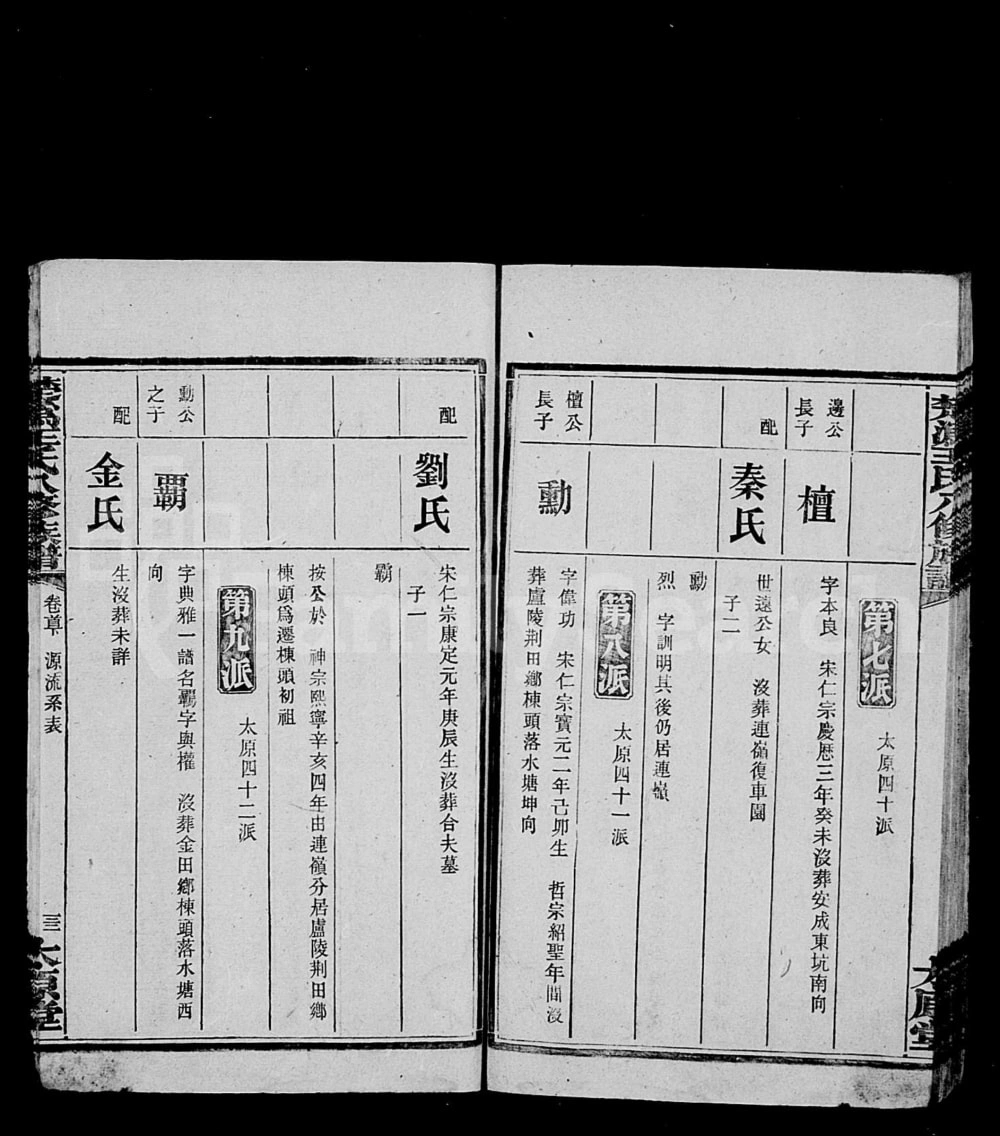 第七派
太原四十派
邊公
長子
檀
字本良 宋仁宗慶歷三年癸未沒葬安成東坑南向
配
秦氏
世遠公女 沒葬連嶺復車園
子二
勳
烈 字訓明其後仍居連嶺
第八派
太原四十一派
檀公
長子
勳
字偉功 宋仁宗寶元二年己卯生 哲宗紹聖年間沒
葬盧陵荆田鄉棟頭落水塘坤向
太原堂
配
劉氏
宋仁宗康定元年庚辰生沒葬合夫墓
子一
霸
按公於 神宗熙寧辛亥四年由連嶺分居盧陵荆田鄉
棟頭爲遷棟頭初祖
第九派
太原四十二派
勳公
之子
霸
字典雅一譜名霸字與權 沒葬金田鄉棟頭落水塘西
向
配
金氏
生沒葬未詳
王氏八修族譜
卷首下 源流系表
三
太原堂